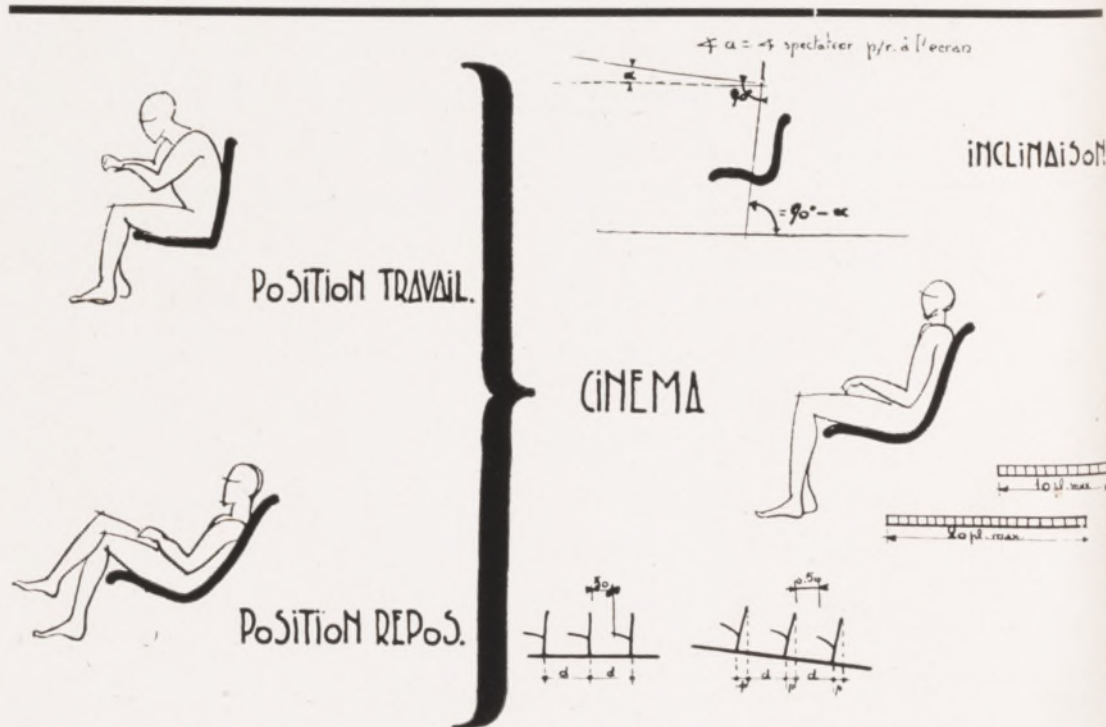 ∡ α = ∡ spectateur p/r. à l'ecran
α
90°
INCLINAISON
= 90° - α
POSITION TRAVAIL.
CINEMA
10 pl. max
20 pl. max
POSITION REPOS.
50
d d
p d p d p